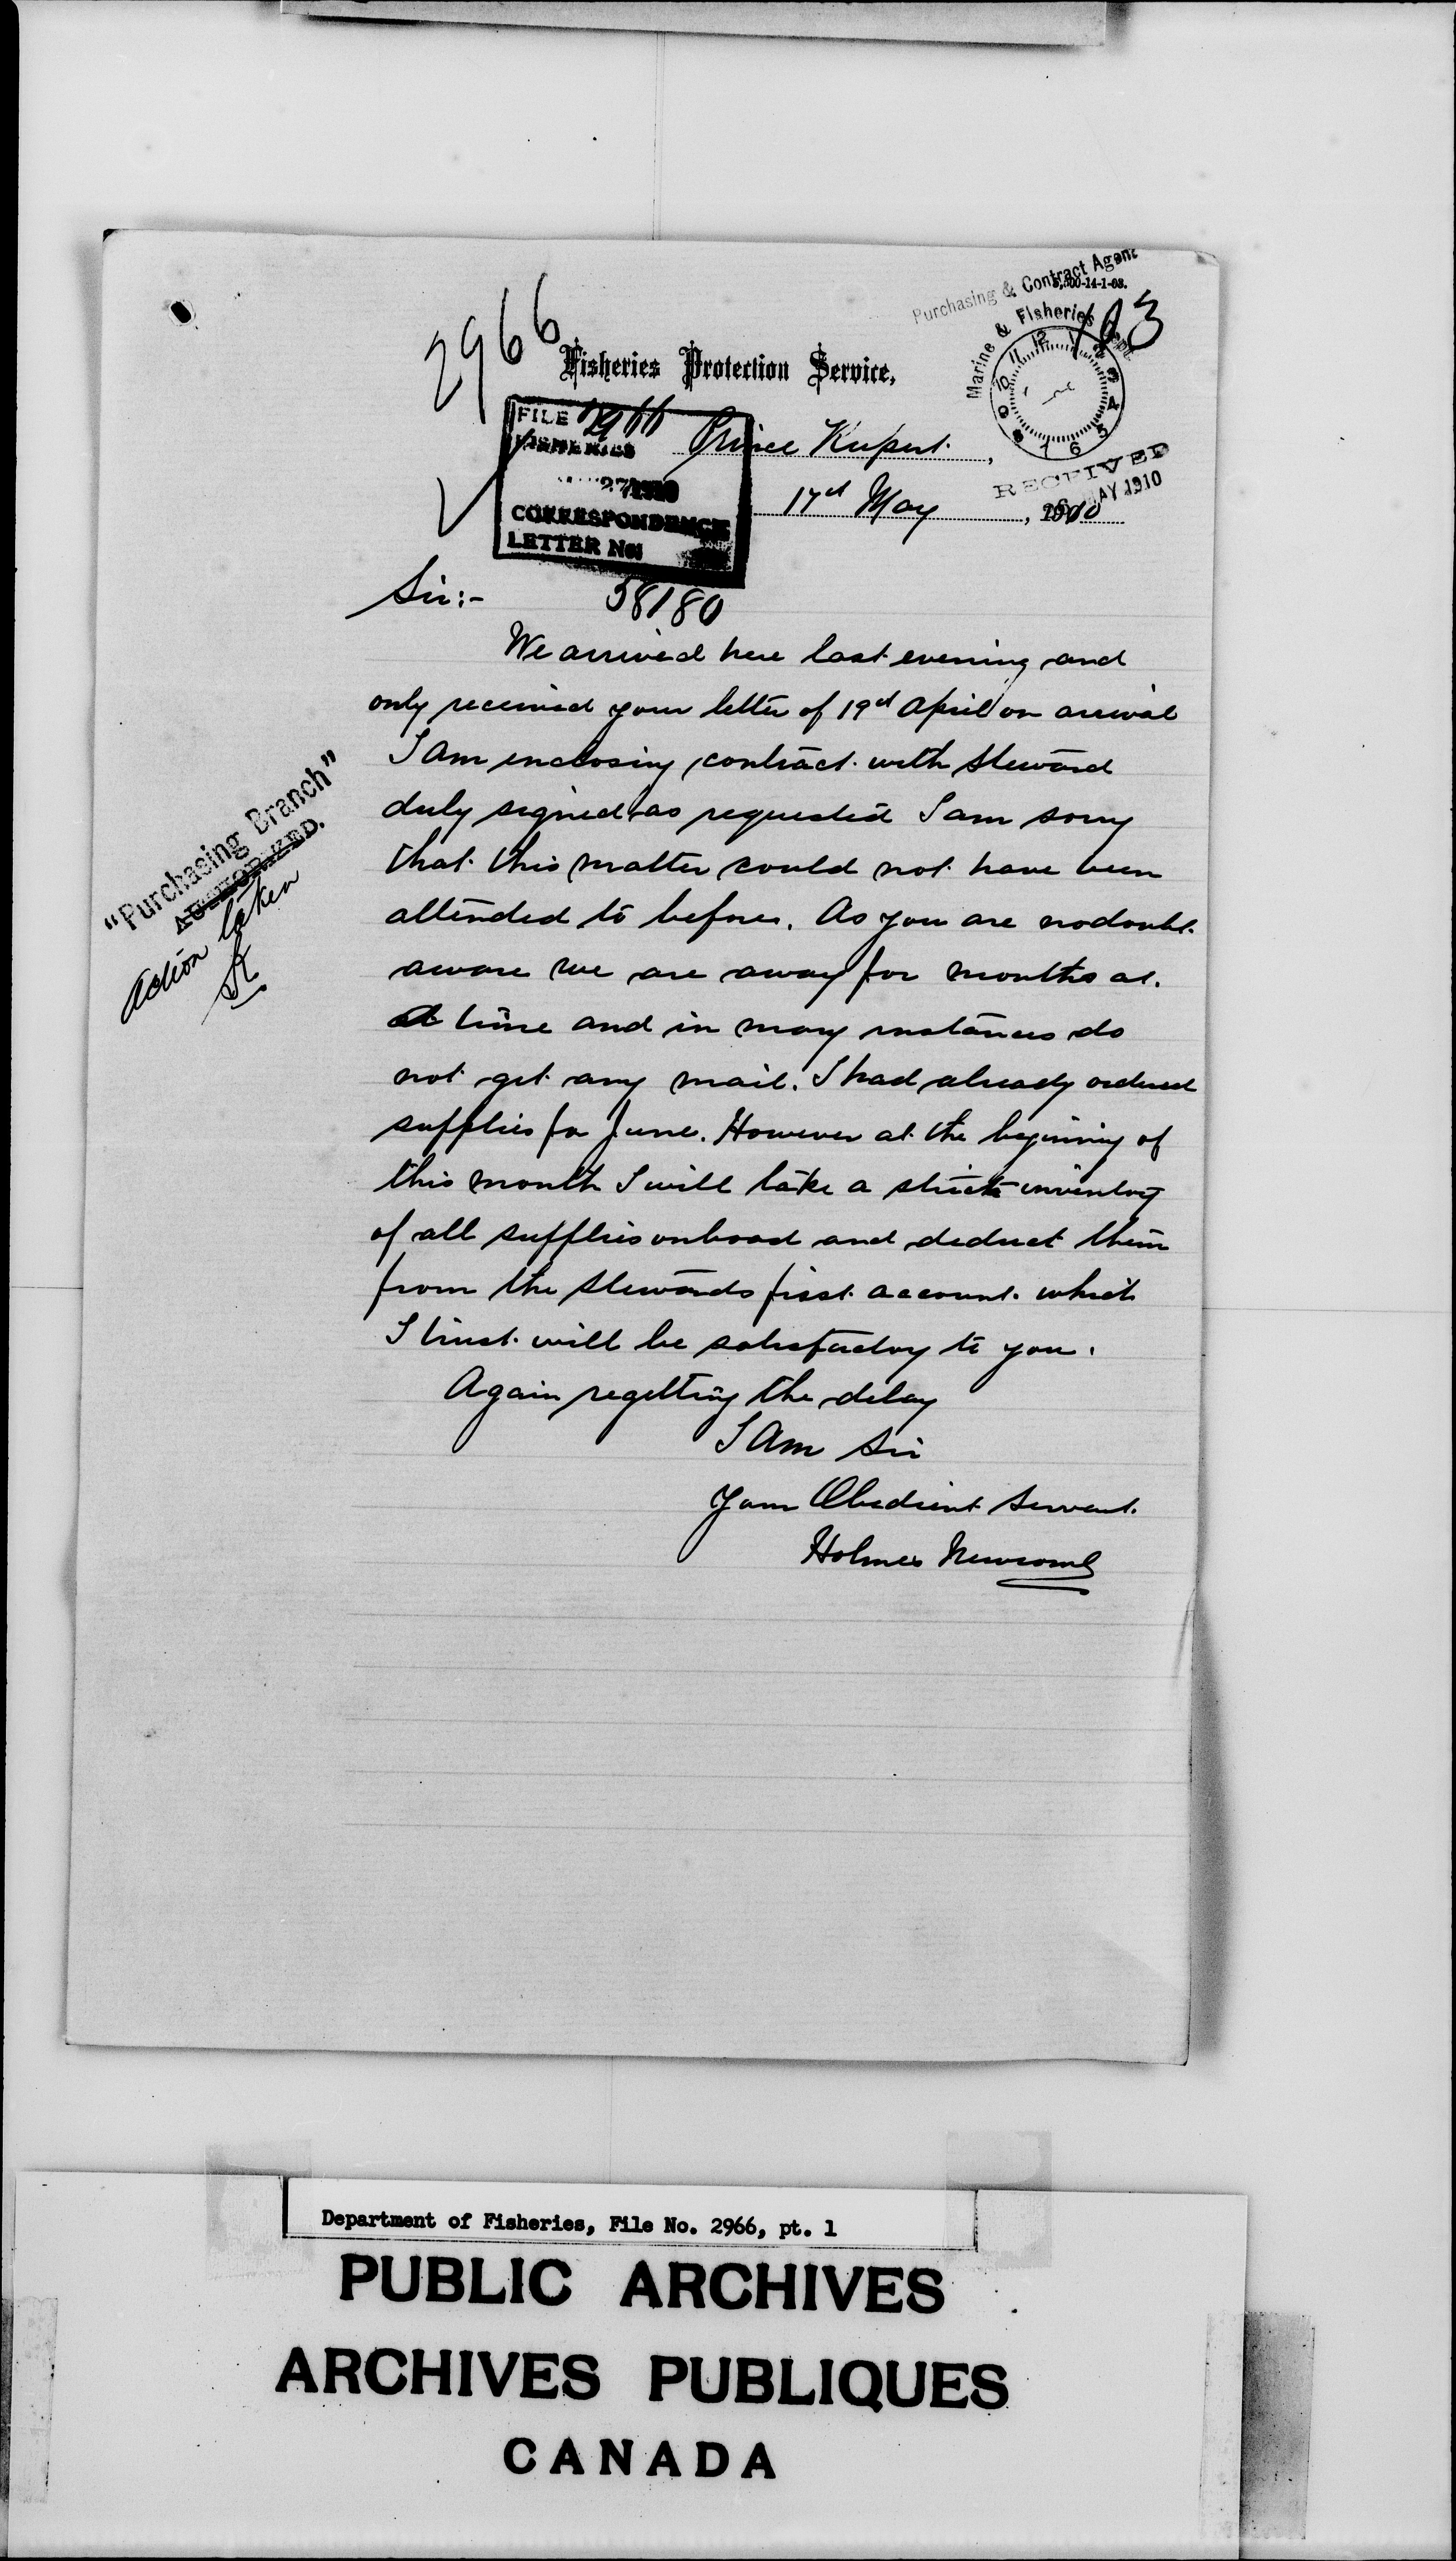 Purchasing & Contract Agent
5,500-14-1-08.
Marine & Fisheries Dept.
103
2966
Fisheries Protection Service,
FILE 2966
FISHERIES
27 1910
CORRESPONDENCE
LETTER No.
58180
Prince Rupert,
17th May, 1910
RECEIVED
26 MAY 1910
12 1 2 3 4 5 6 7 8 9 10 11
Sir:-
We arrived here last evening and
only received your letter of 19th April on arrival
I am enclosing contract with Steward
duly signed as requested I am sorry
that this matter could not have been
attended to before. As you are nodoubt
aware we are away for months at
a time and in many instances do
not get any mail. I had already ordered
supplies for June. However at the beginning of
this month I will take a strict inventory
of all supplies onboard and deduct them
from the Stewards first account which
I trust will be satisfactory to you.
Again regetting the delay
I Am Sir
Your Obedient Servant
Holmes Newcomb
"Purchasing Branch"
Action taken
Department of Fisheries, File No. 2966, pt. 1
PUBLIC ARCHIVES
ARCHIVES PUBLIQUES
CANADA